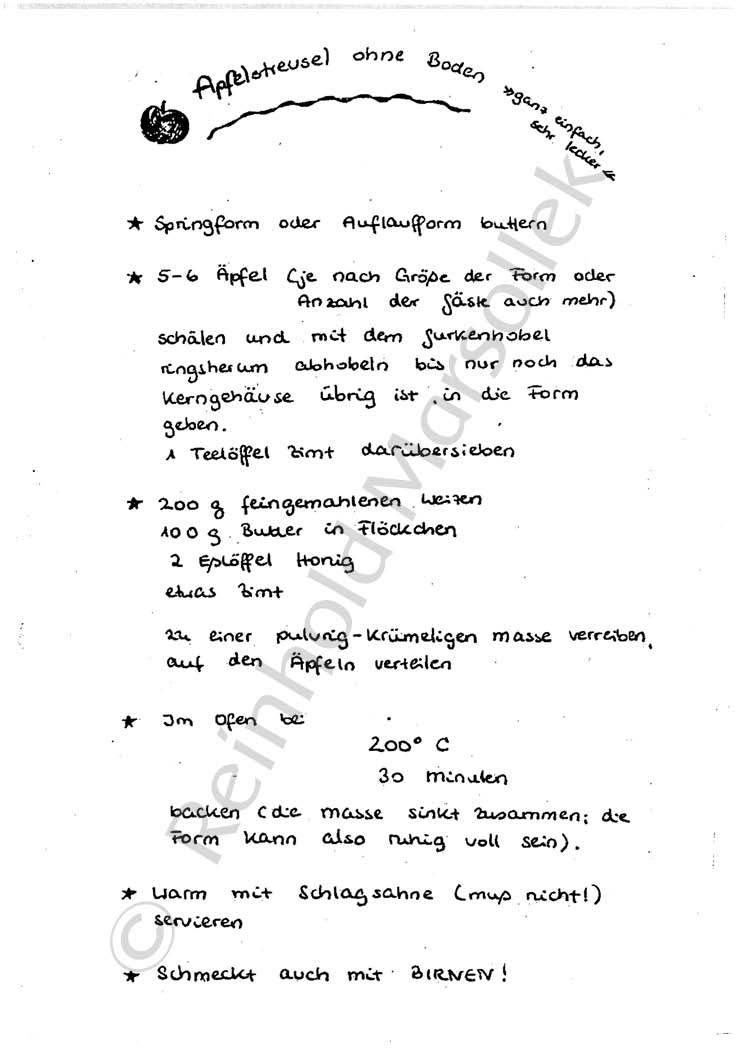 Apfelstreusel ohne Boden
»ganz einfach,
sehr lecker«
★ Springform oder Auflaufform buttern
★ 5-6 Äpfel (je nach Größe der Form oder
Anzahl der Gäste auch mehr)
schälen und mit dem Gurkenhobel
ringsherum abhobeln bis nur noch das
Kerngehäuse übrig ist, in die Form
geben.
1 Teelöffel Zimt darübersieben
★ 200 g feingemahlenen Weizen
100 g Butter in Flöckchen
2 Eßlöffel Honig
etwas Zimt
zu einer pulvrig-krümeligen Masse verreiben,
auf den Äpfeln verteilen
★ Im Ofen bei
200° C
30 Minuten
backen (die Masse sinkt zusammen; die
Form kann also ruhig voll sein).
★ Warm mit Schlagsahne (muß nicht!)
servieren
★ Schmeckt auch mit BIRNEN!
© Reinhold Marsollek